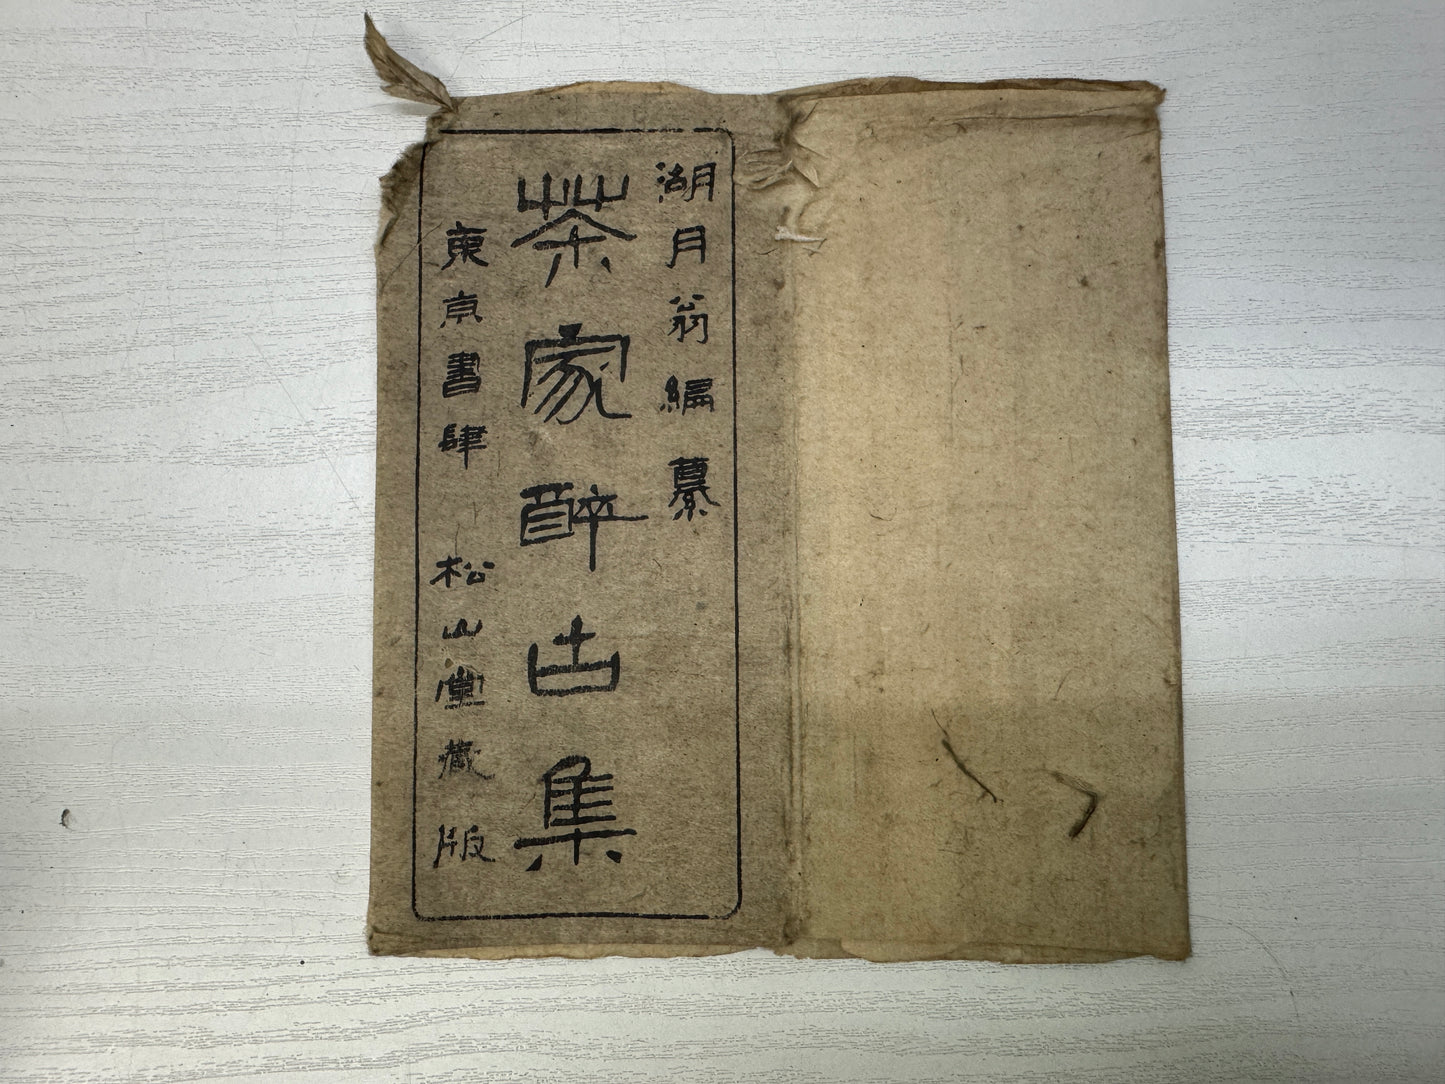 湖月翁編纂
茶家酔古集
東京書肆 松山堂蔵版